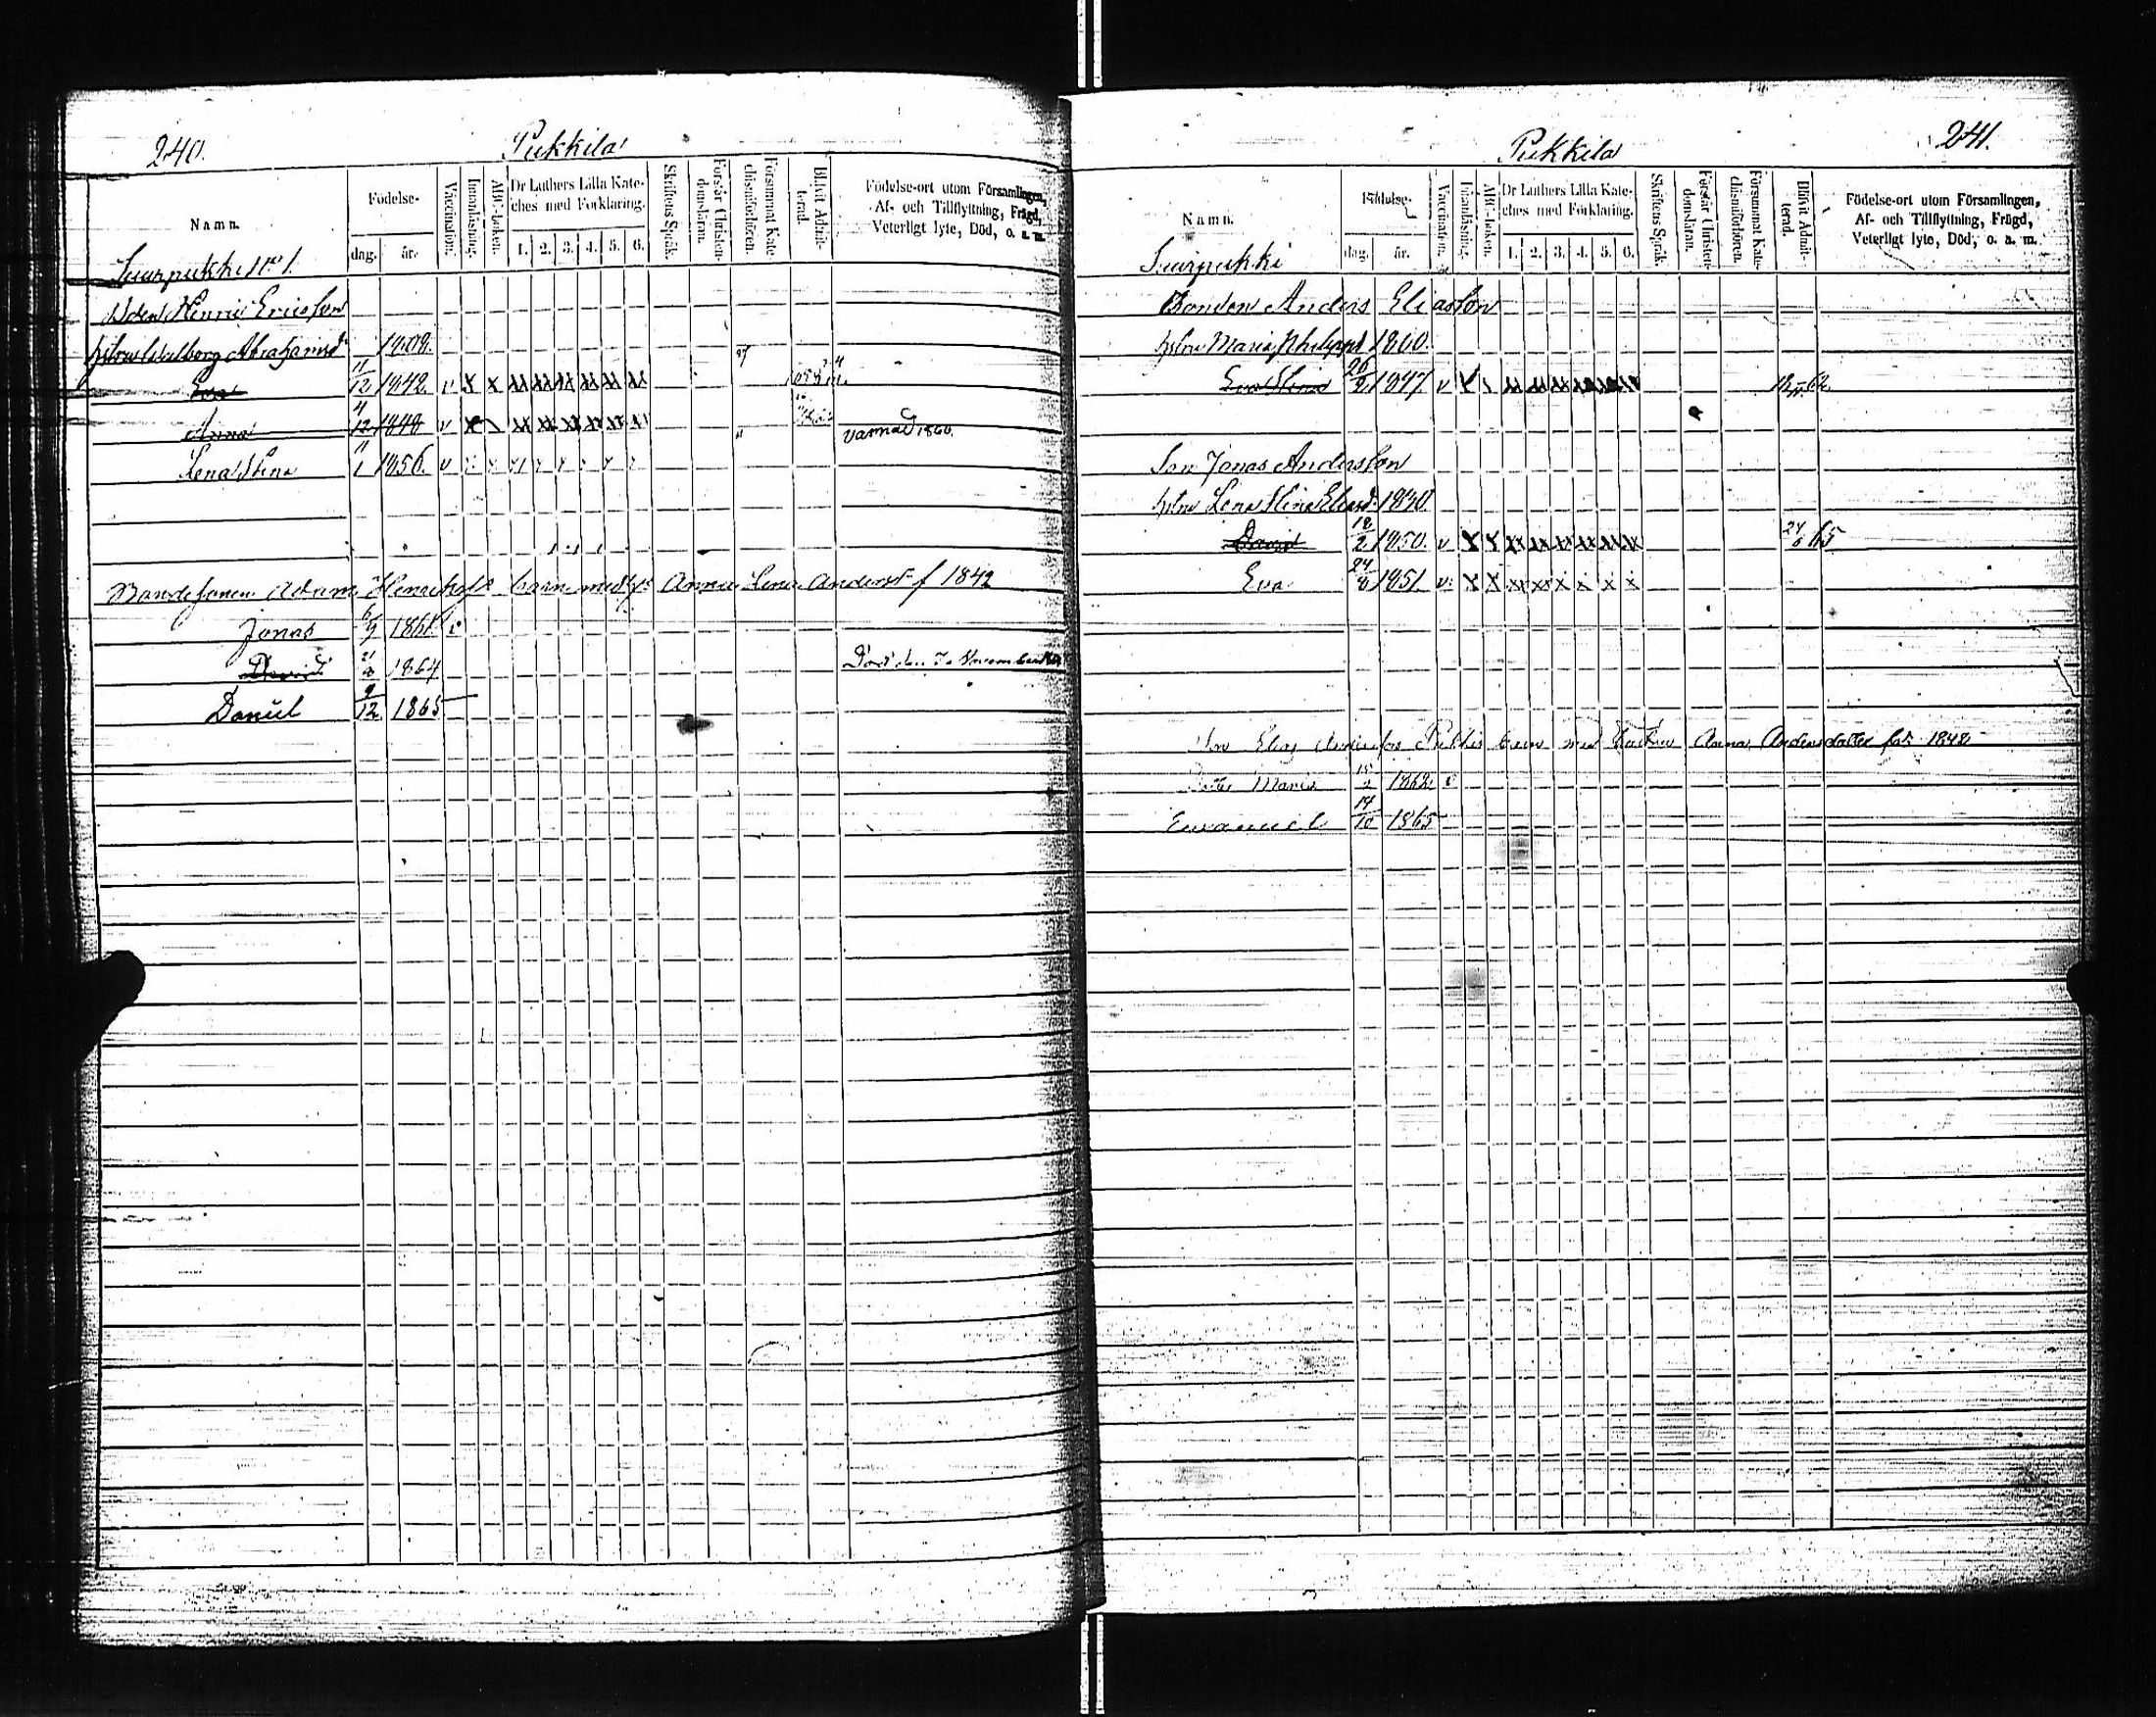 240.
Pukkila
Namn.
Födelse-
dag.
år.
Vaccination.
Innanläsning.
ABC-boken.
Dr Luthers Lilla Kate-
ches med Förklaring.
1. 2. 3. 4. 5. 6.
Skriftens Språk.
Förstår Christen-
domsläran.
Försummat Kate-
chismiförhören.
Blifvit Admit-
terad.
Födelse-ort utom Församlingen,
Af- och Tillflyttning, Frägd,
Veterligt lyte, Död, o. a. m.
Suurpukki No 1.
Henric Ericsson
hstru Walborg Abrahamsd 1808.
Eva 11/12 1842. v x x
Anna 4/12 1848 v varnad 1860.
Lena Stina 11/1 1856. v
Bondesonen Adam barn med Anna Lena Andersd f 1842
Jonas 6/9 1861. v
David 21 1864
Daniel 9/12 1865
241.
Pukkila
Namn.
Födelse-
dag.
år.
Vaccination.
Innanläsning.
ABC-boken.
Dr Luthers Lilla Kate-
ches med Förklaring.
1. 2. 3. 4. 5. 6.
Skriftens Språk.
Förstår Christen-
domsläran.
Försummat Kate-
chismiförhören.
Blifvit Admit-
terad.
Födelse-ort utom Församlingen,
Af- och Tillflyttning, Frägd,
Veterligt lyte, Död, o. a. m.
Suurpukki
Bonden Anders Eliasson
hstru Maria Philippsd 1800.
Eva Stina 26/2 1847. v
Son Jonas Andersson
hstru Lena Stina Eliasd. 1830
David 18/2 1850. v x x 24/6 65
Eva 24/8 1851. v x x
Elias barn med hustru Anna Andersdotter
Maria 1862 v
Emanuel 14/10 1865